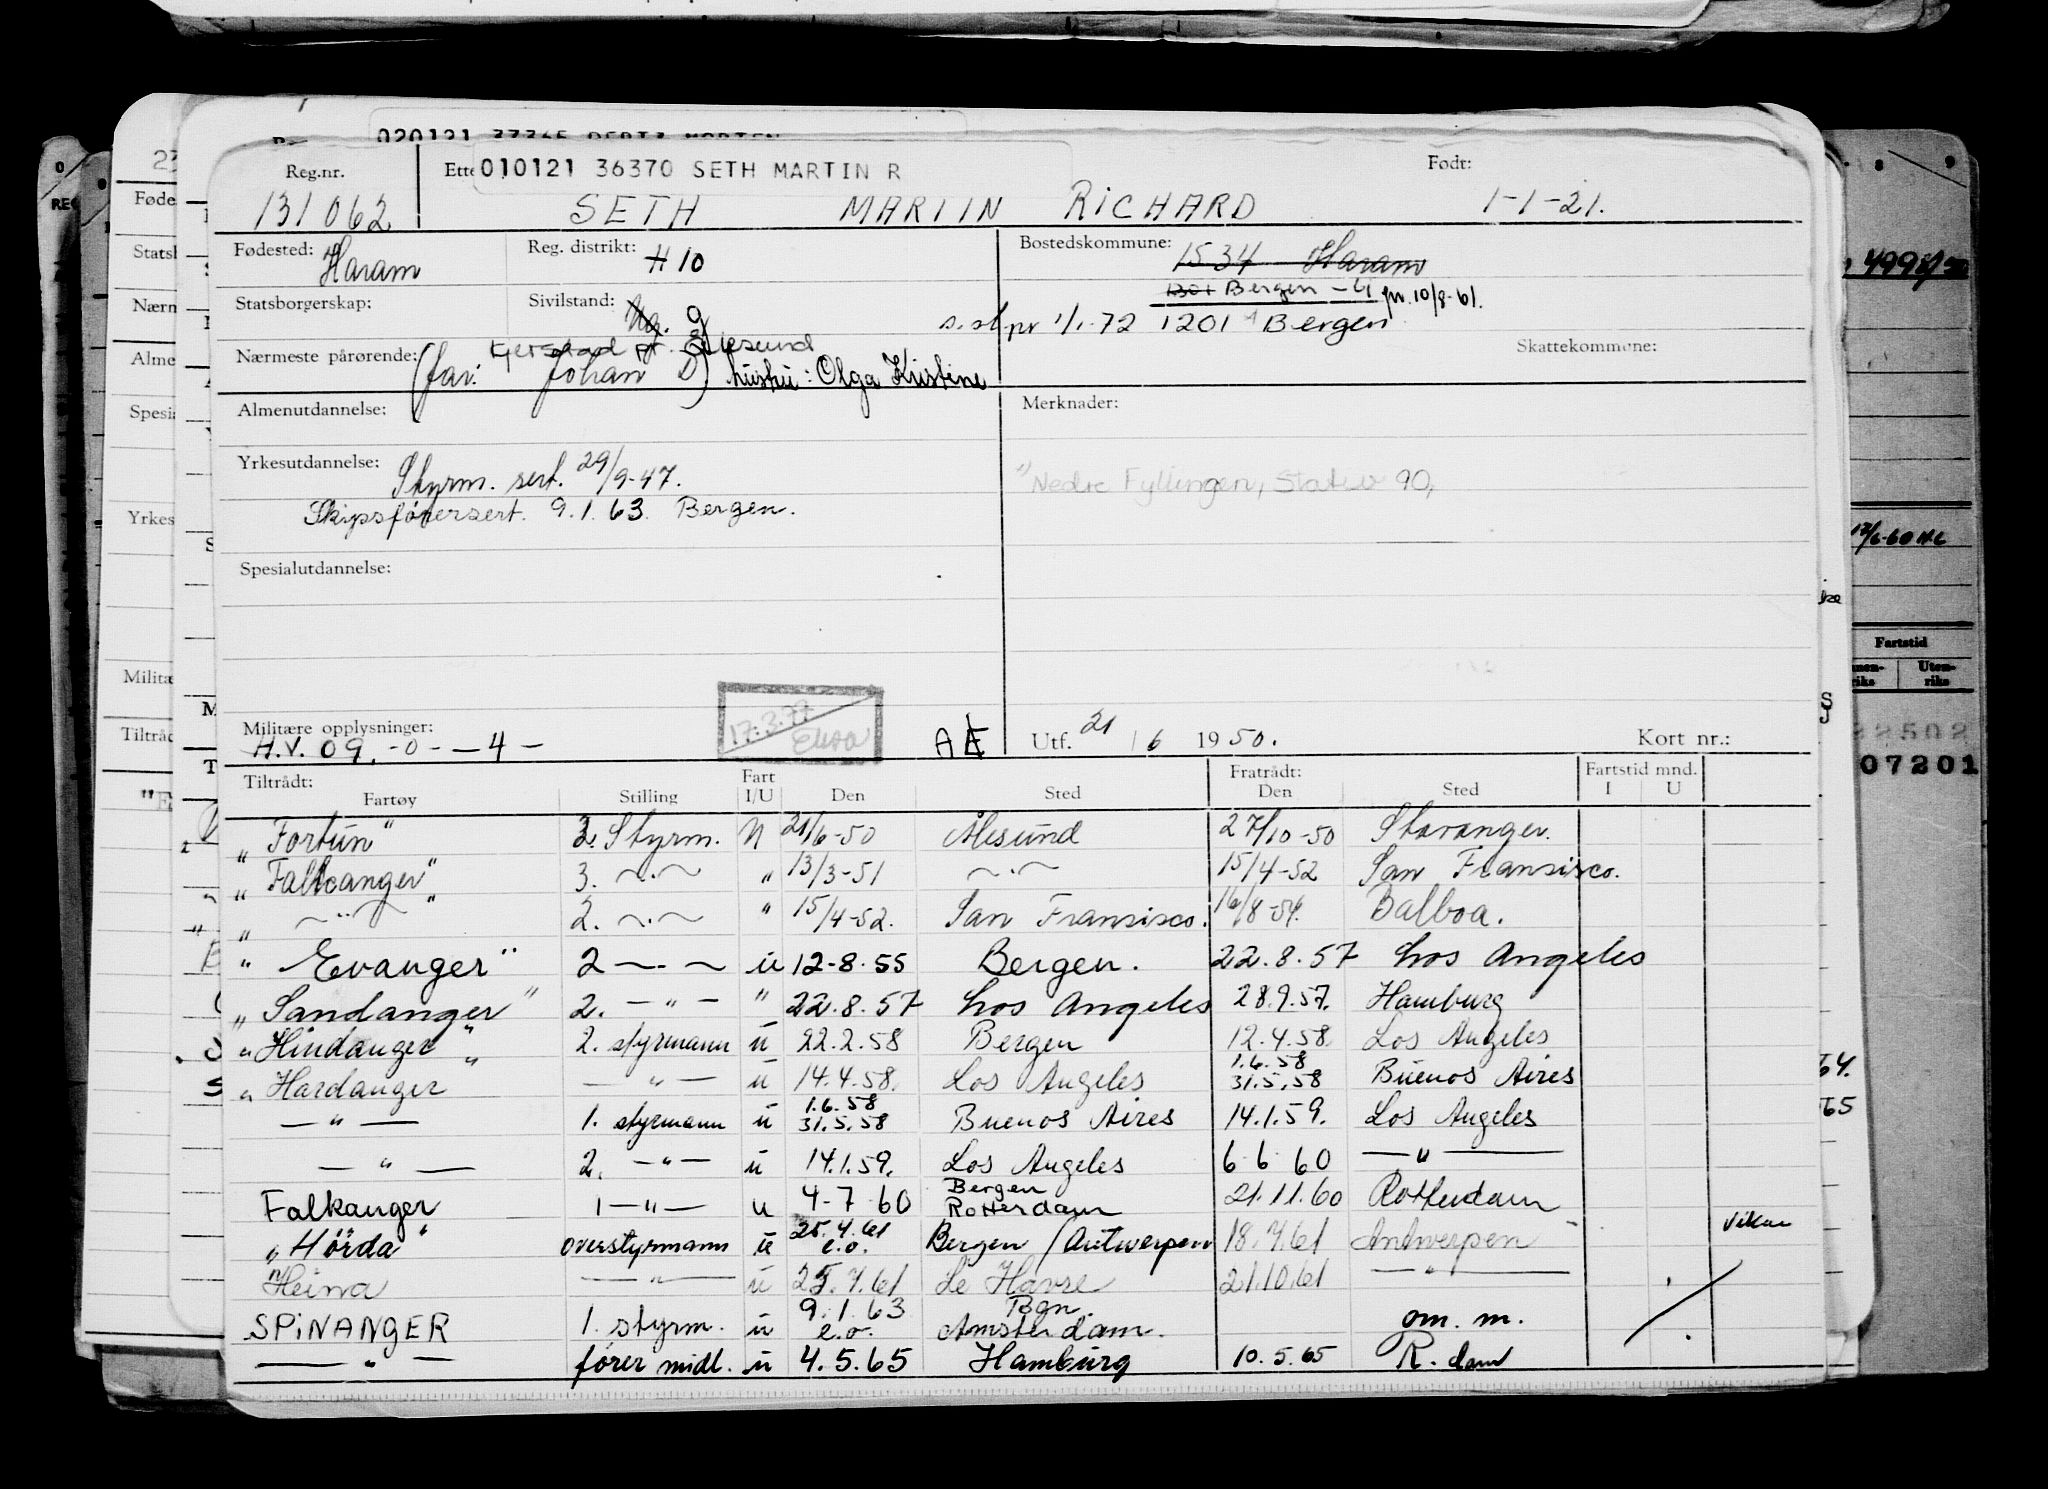 Reg.nr. 010121 36370 SETH MARTIN R Født:
131062 SETH MARTIN RICHARD 1-1-21.
Fødested: Haram Reg. distrikt: H 10 Bostedskommune: 1534 Haram
1301 Bergen - 4 fr. 10/8-61.
Statsborgerskap: Sivilstand: Ug. g
s.st. pr 1/1-72 1201 Bergen
Skattekommune:
Kjerstad pr. Ålesund
Nærmeste pårørende: (far: Johan D) hustru: Olga Kristine
Almenutdannelse: Merknader:
Yrkesutdannelse: Styrm. sert. 29/9-47.
1) Nedre Fyllingen, 90,
Skipsførersert. 9.1.63. Bergen.
Spesialutdannelse:
17.3.77
Militære opplysninger: A Utf. 21/6 1950. Kort nr.:
H.V. 09. -0- -4-
Tiltrådt: Fart Fratrådt: Fartstid mnd.
Fartøy Stilling I/U Den Sted Den Sted I U
"Fortun" 2. Styrm. N 21/6-50 Ålesund 27/10-50 Stavanger.
"Falkanger" 3. —"— " 13/3-51 —"— 15/4-52 San Fransisco.
" —"— " 2. —"— " 15/4-52. San Fransisco. 16/8-54. Balboa.
"Evanger" 2 —"— u 12-8-55 Bergen. 22.8.57 Los Angeles
"Sandanger" 2. —"— " 22.8.57 Los Angeles 28.9.57. Hamburg
"Hindanger" 2. styrmann u 22.2.58 Bergen 12.4.58. Los Angeles
"Hardanger —"— u 14.4.58. Los Angeles 1.6.58 31.5.58 Buenos Aires
—"— 1. styrmann u 1.6.58 31.5.58 Buenos Aires 14.1.59. Los Angeles
—"— 2. —"— u 14.1.59. Los Angeles 6 6 60 —"—
Falkanger 1 —"— u 4-7-60 Bergen Rotterdam 21.11.60 Rotterdam
"Hörda" overstyrmann u 25.4.61 e.o. Bergen / Antwerpen 18.7.61 Antwerpen vikar
"Heina —"— u 25.7.61 Le Havre 21.10.61 —"—
SPINANGER 1. styrm. u 9.1.63 e.o. Bgn. Amsterdam. om. m.
—"— fører midl. u 4.5.65 Hamburg 10.5.65 R.dam
17/6-60
Fartstid
Uten-
riks
22502
07201
64.
65